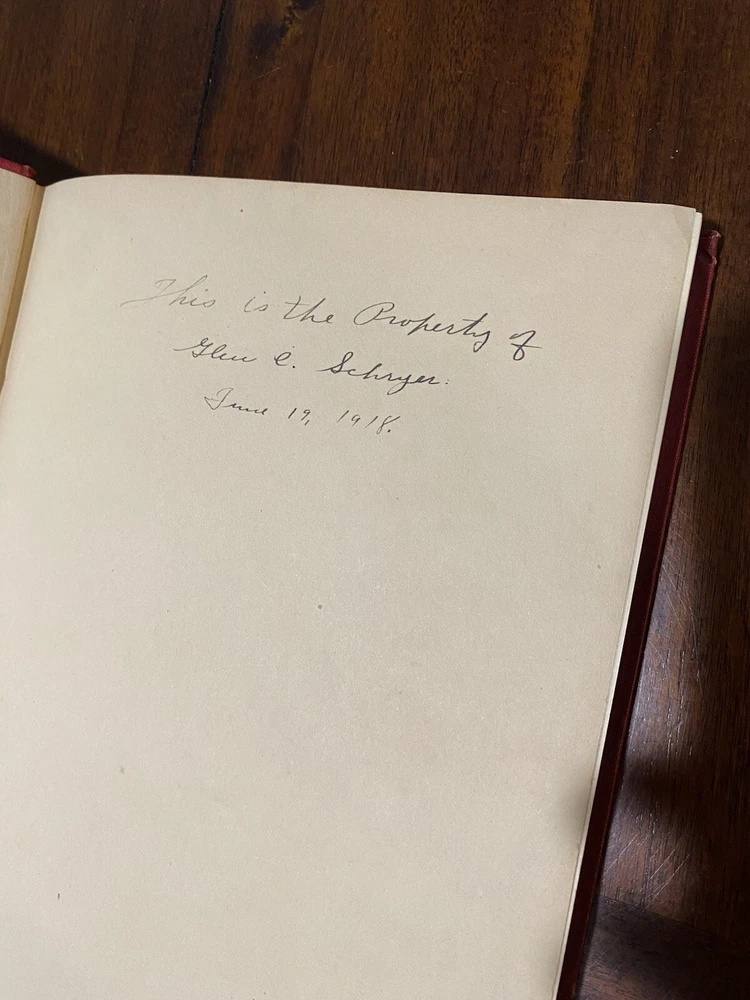 This is the Property of
Glen C. Schryer.
June 19, 1918.